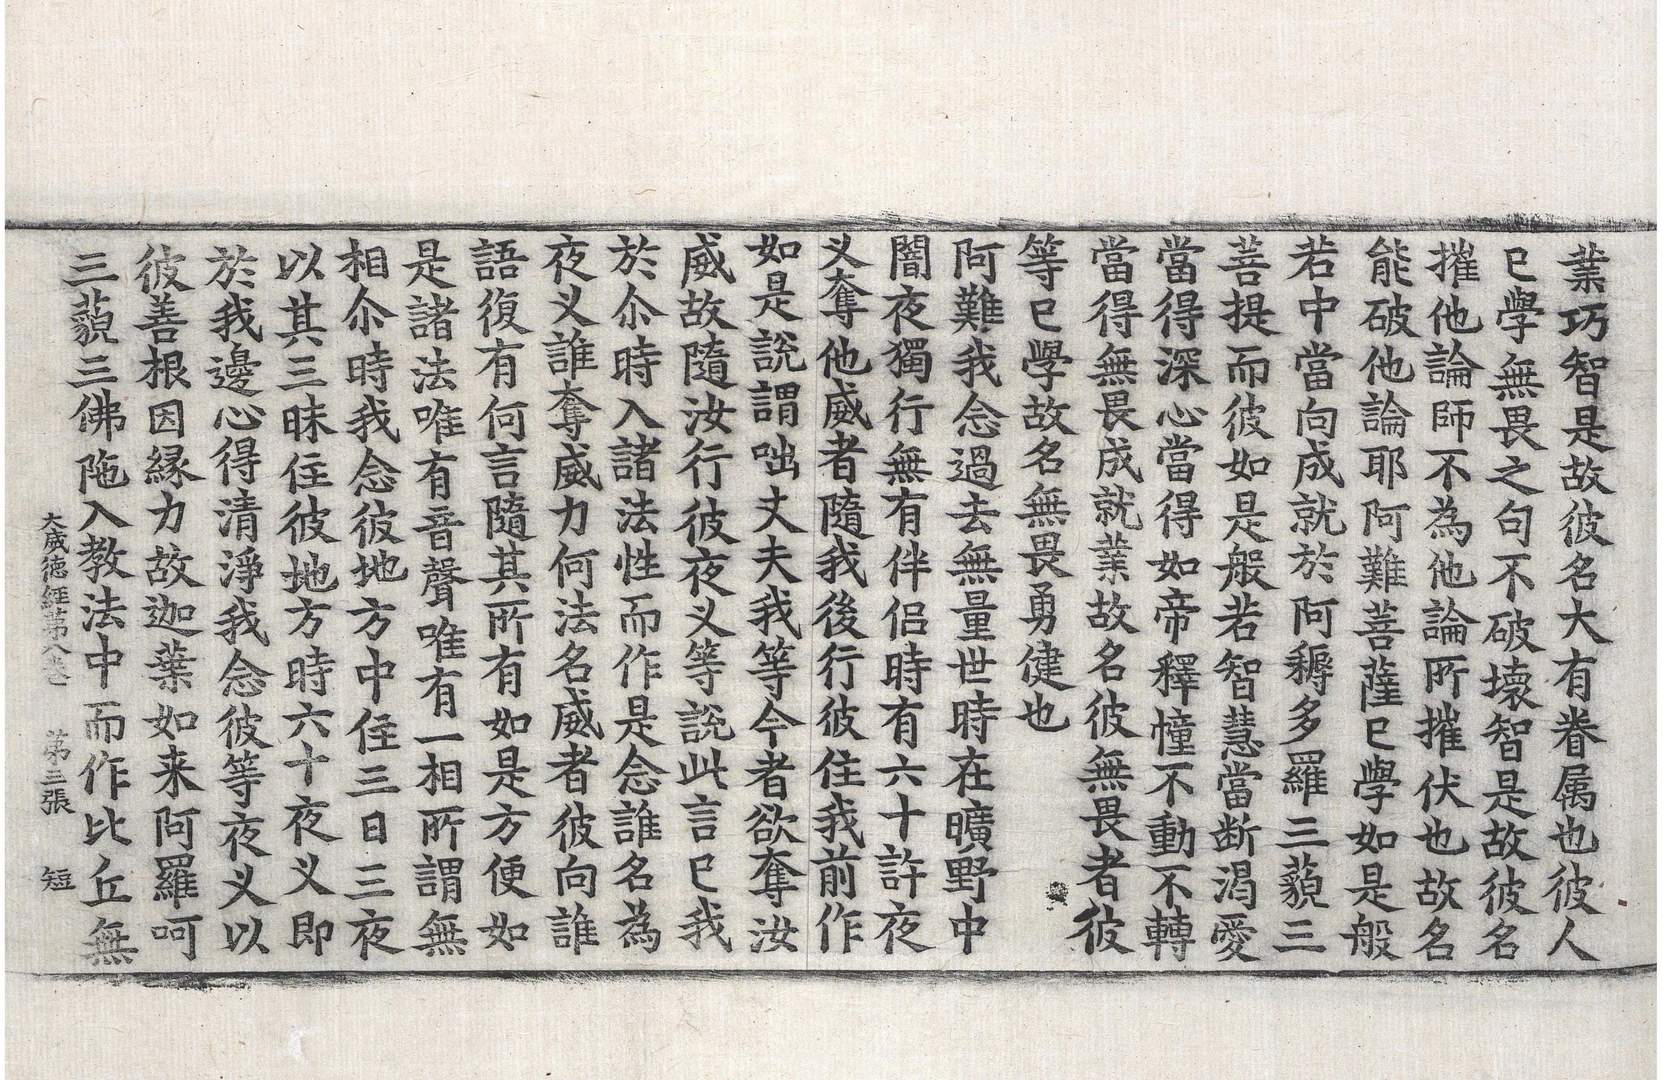 業巧智是故彼名大有眷属也彼人
已學無畏之句不破壞智是故彼名
摧他論師不為他論所摧伏也故名
能破他論耶阿難菩薩已學如是般
若中當向成就於阿耨多羅三藐三
菩提而彼如是般若智慧當断渴愛
當得深心當得如帝釋幢不動不轉
當得無畏成就業故名彼無畏者彼
等已學故名無畏勇健也
阿難我念過去無量世時在曠野中
闇夜獨行無有伴侣時有六十許夜
义奪他威者隨我後行彼住我前作
如是說謂咄丈夫我等今者欲奪汝
威故隨汝行彼夜义等說此言已我
於尒時入諸法性而作是念誰名為
夜义誰奪威力何法名威者彼向誰
語復有何言隨其所有如是方便如
是諸法唯有音聲唯有一相所謂無
相尒時我念彼地方中住三日三夜
以其三昧住彼地方時六十夜义即
於我邊心得清淨我念彼等夜义以
彼善根因緣力故迦葉如来阿羅呵
三藐三佛陁入教法中而作比丘無
大威德經第八卷 第三張 短